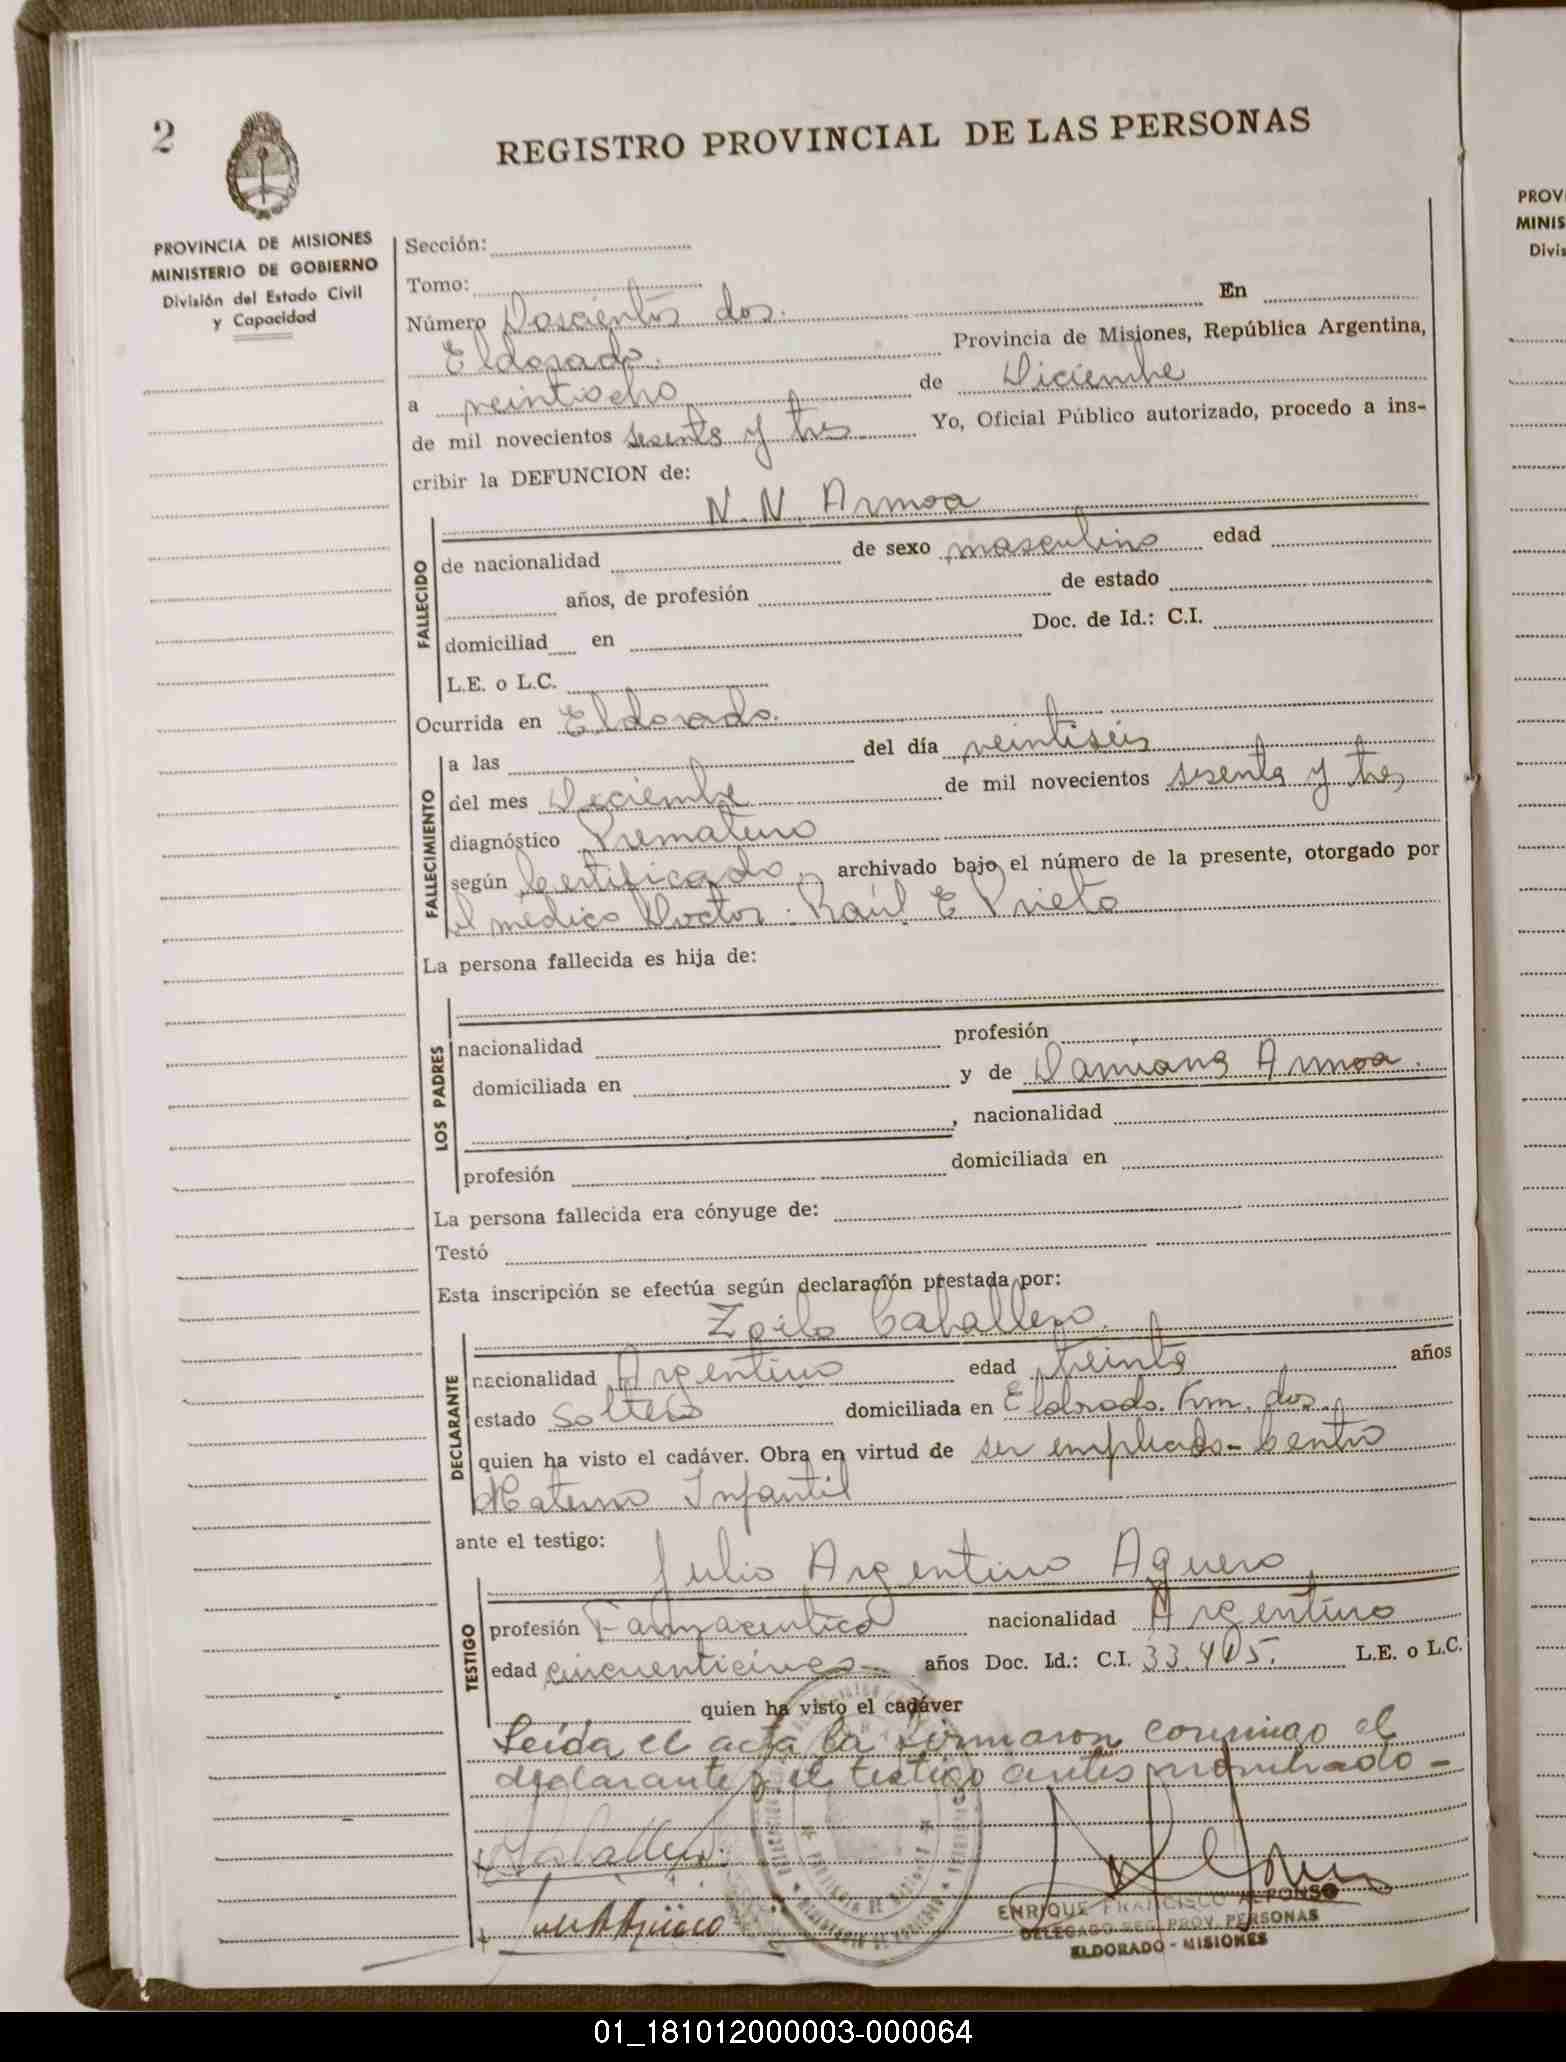 2
REGISTRO PROVINCIAL DE LAS PERSONAS
PROVINCIA DE MISIONES
MINISTERIO DE GOBIERNO
División del Estado Civil
y Capacidad
Sección:
Tomo:
Número Doscientos dos. En
Eldorado. Provincia de Misiones, República Argentina,
a veintiocho de Diciembre
de mil novecientos sesenta y tres Yo, Oficial Público autorizado, procedo a ins-
cribir la DEFUNCION de:
N. N. Armoa
FALLECIDO
de nacionalidad de sexo masculino edad
años, de profesión de estado
domiciliad en Doc. de Id.: C.I.
L.E. o L.C.
Ocurrida en Eldorado.
FALLECIMIENTO
a las del día veintiseis
del mes Diciembre de mil novecientos sesenta y tres
diagnóstico Prematuro
según Certificado, archivado bajo el número de la presente, otorgado por
el médico Doctor: Raúl E Prieto
La persona fallecida es hija de:
LOS PADRES
nacionalidad profesión
domiciliada en y de Damiana Armoa.
, nacionalidad
profesión domiciliada en
La persona fallecida era cónyuge de:
Testó
Esta inscripción se efectúa según declaración prestada por:
Zoilo Caballero.
DECLARANTE
nacionalidad Argentino edad treinta años
estado soltero domiciliada en Eldorado. Km. dos.
quien ha visto el cadáver. Obra en virtud de ser empleado - Centro
Materno Infantil
ante el testigo:
Julio Argentino Aguero
TESTIGO
profesión Farmaceutico nacionalidad Argentino
edad cincuenticinco años Doc. Id.: C.I. 33.405. L.E. o L.C.
quien ha visto el cadáver
Leída el acta la firmaron conmigo el
declarante y el testigo antes nombrado -
ENRIQUE FRANCISCO ALFONSO
DELEGADO REG. PROV. PERSONAS
ELDORADO - MISIONES
PROV
MINIS
Divis
01_181012000003-000064